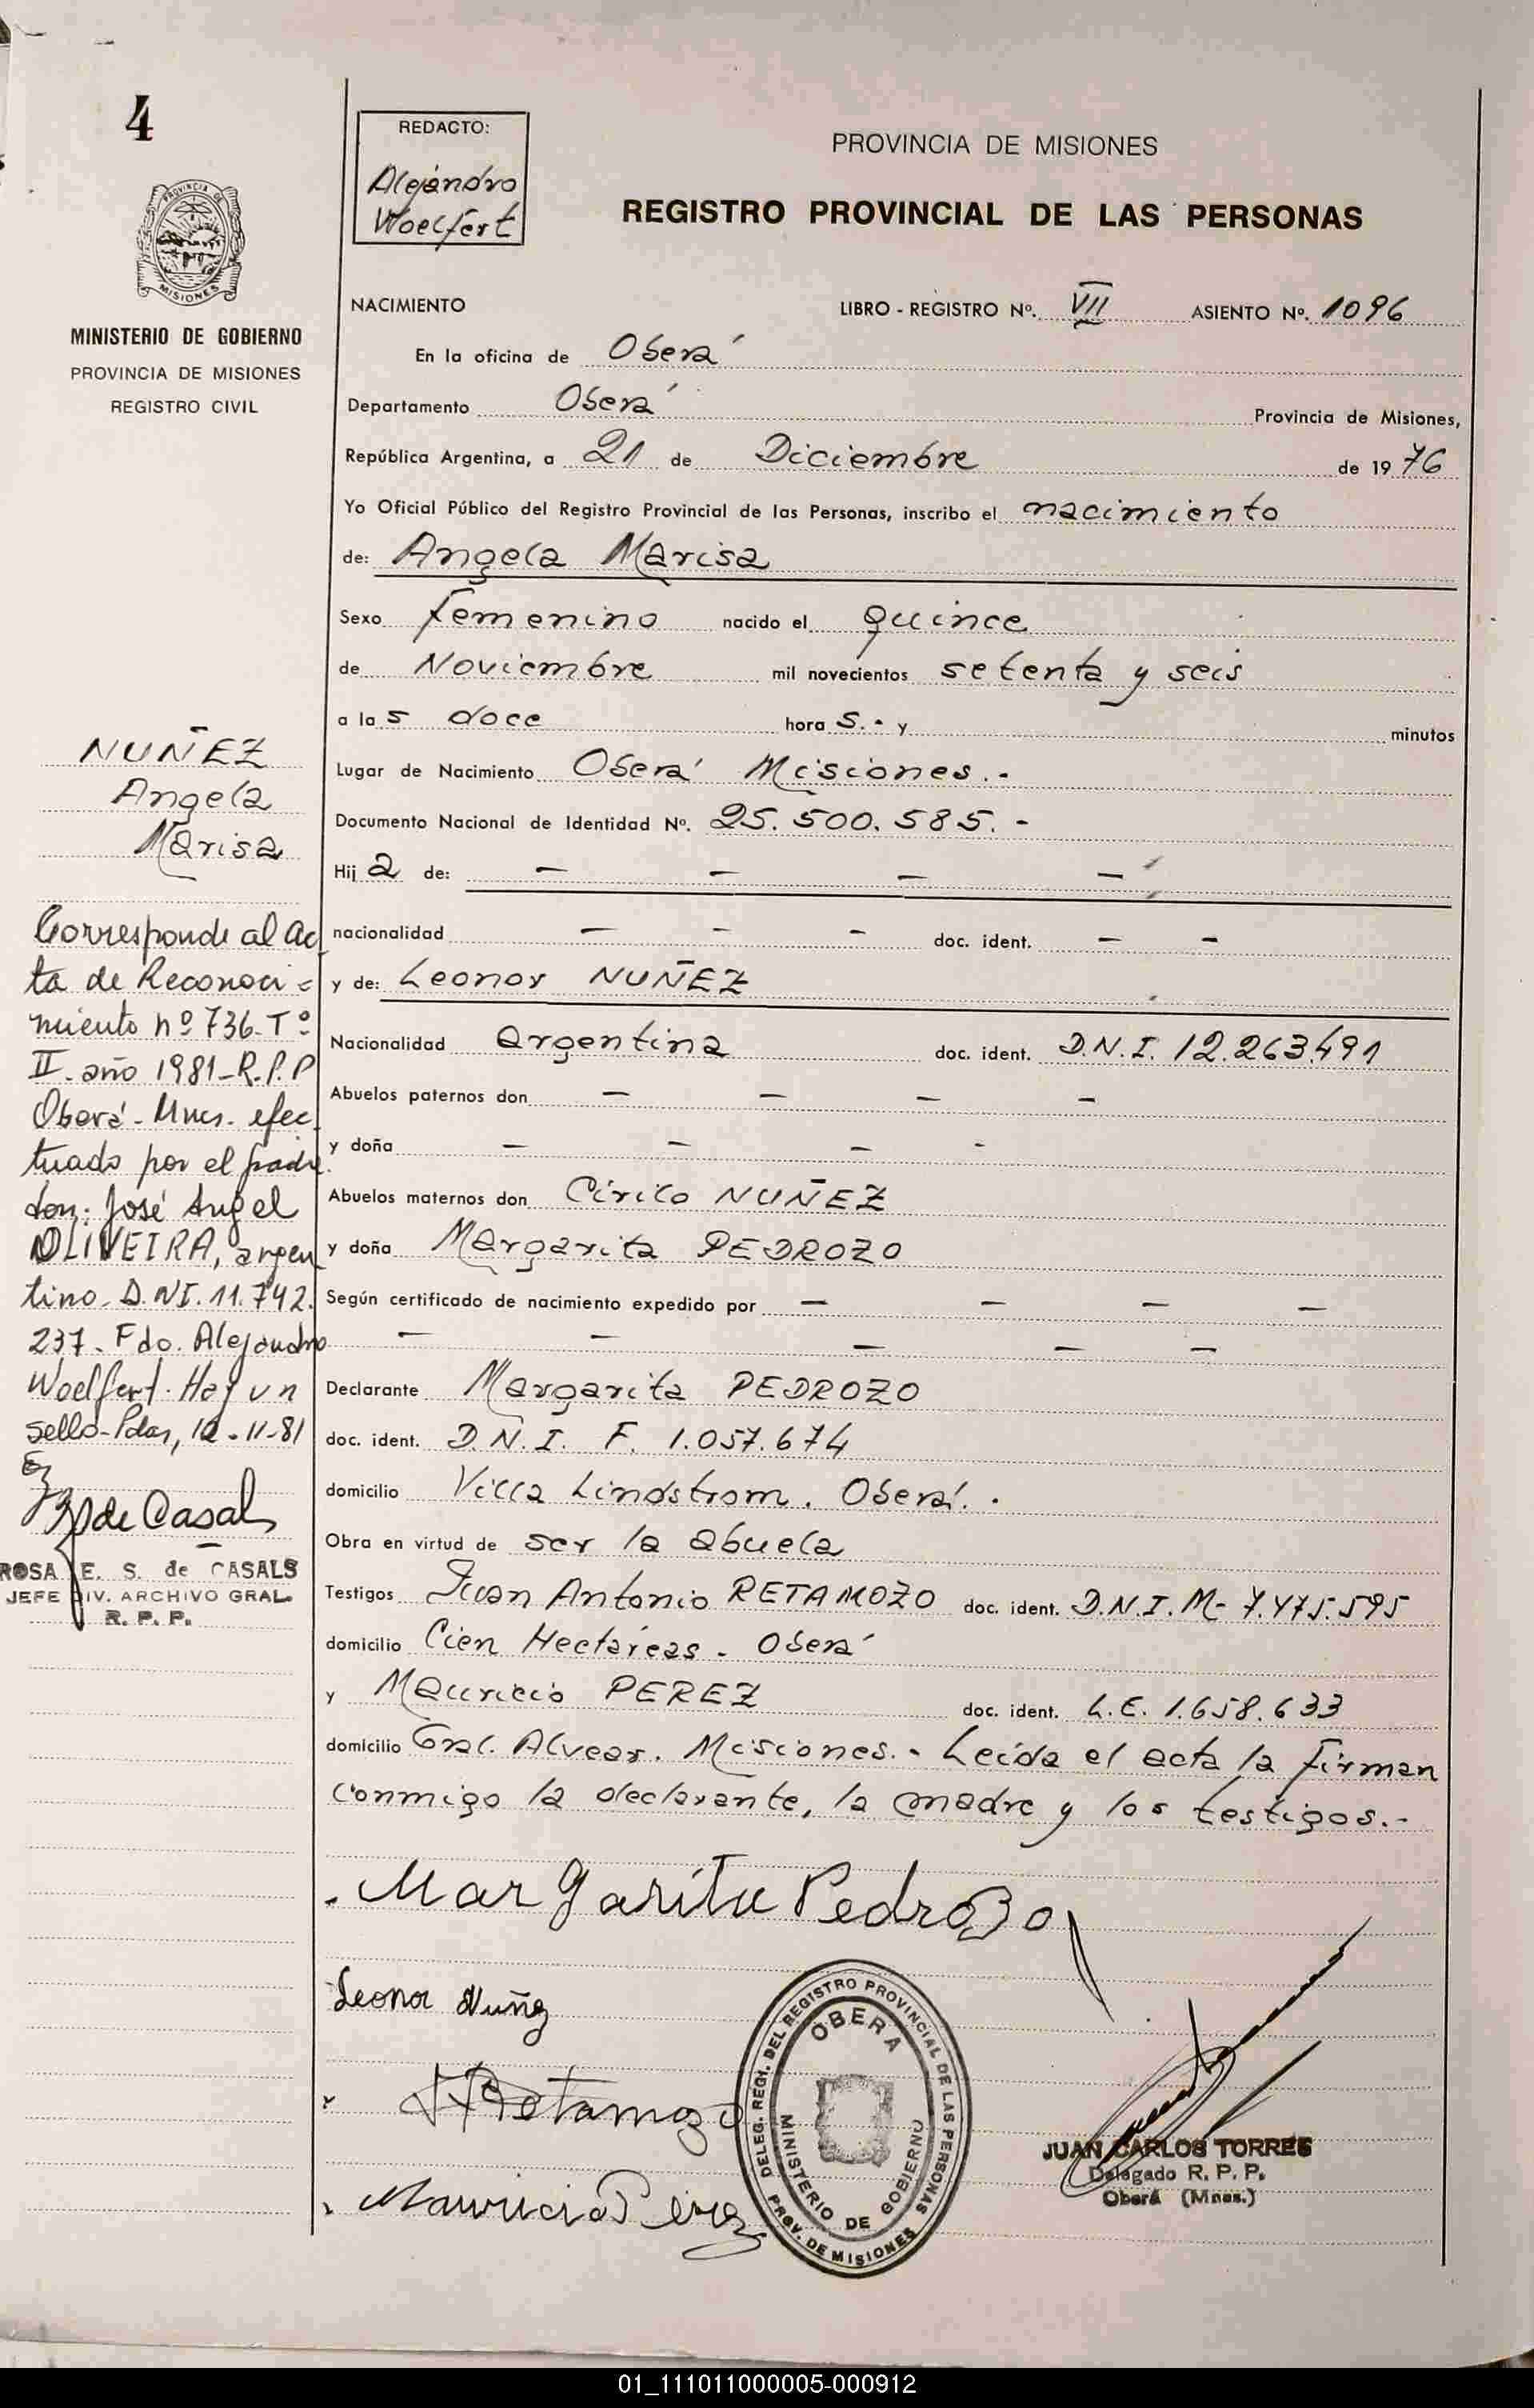 4
REDACTO:
Alejandro
Woelfert
PROVINCIA DE MISIONES
REGISTRO PROVINCIAL DE LAS PERSONAS
PROVINCIA DE
MISIONES
MINISTERIO DE GOBIERNO
PROVINCIA DE MISIONES
REGISTRO CIVIL
NACIMIENTO LIBRO - REGISTRO Nº. VII ASIENTO Nº. 1096
En la oficina de Oberá
Departamento Oberá Provincia de Misiones,
República Argentina, a 21 de Diciembre de 19 76
Yo Oficial Público del Registro Provincial de las Personas, inscribo el nacimiento
de: Angela Marisa
Sexo femenino nacido el quince
de Noviembre mil novecientos setenta y seis
a la s doce hora s.- y minutos
Lugar de Nacimiento Oberá Misiones.-
Documento Nacional de Identidad Nº. 25.500.585.-
Hij a de: — — — —
nacionalidad — — — doc. ident. — —
y de: Leonor NUÑEZ
Nacionalidad argentina doc. ident. D.N.I. 12.263.491
Abuelos paternos don — — — —
y doña — — — -
Abuelos maternos don Cirilo NUÑEZ
y doña Margarita PEDROZO
Según certificado de nacimiento expedido por — — — —
— — — — —
Declarante Margarita PEDROZO
doc. ident. D.N.I. F. 1.057.674
domicilio Villa Lindstrom. Oberá. .
Obra en virtud de ser la abuela
Testigos Juan Antonio RETAMOZO doc. ident. D.N.I. M- 7.475.595
domicilio Cien Hectáreas - Oberá
y Mauricio PEREZ doc. ident. L.E. 1.658.633
domicilio Gral. Alvear. Misiones.- Leída el acta la firman
conmigo la declarante, la madre y los testigos.-
NUÑEZ
Angela
Marisa
Corresponde al Ac
ta de Reconoci =
miento nº 736-Tº
II-año 1981-R.P.P
Oberá-Mnes. efec
tuado por el padre
don: José Angel
OLIVEIRA, argen
tino. D.NI. 11.742.
237. Fdo. Alejandro
Woelfert. Hay un
sello-Pdas, 12-11-81
de Casals
ROSA E. S. de CASALS
JEFE DIV. ARCHIVO GRAL.
R. P. P.
Margarita Pedrozo
Leonor Nuñez
Retamozo
Mauricio Perez
DELEG. REGI. DEL REGISTRO PROVINCIAL DE LAS PERSONAS
PROV. DE MISIONES
OBERA
MINISTERIO DE GOBIERNO
JUAN CARLOS TORRES
Delegado R. P. P.
Oberá (Mnes.)
01_111011000005-000912